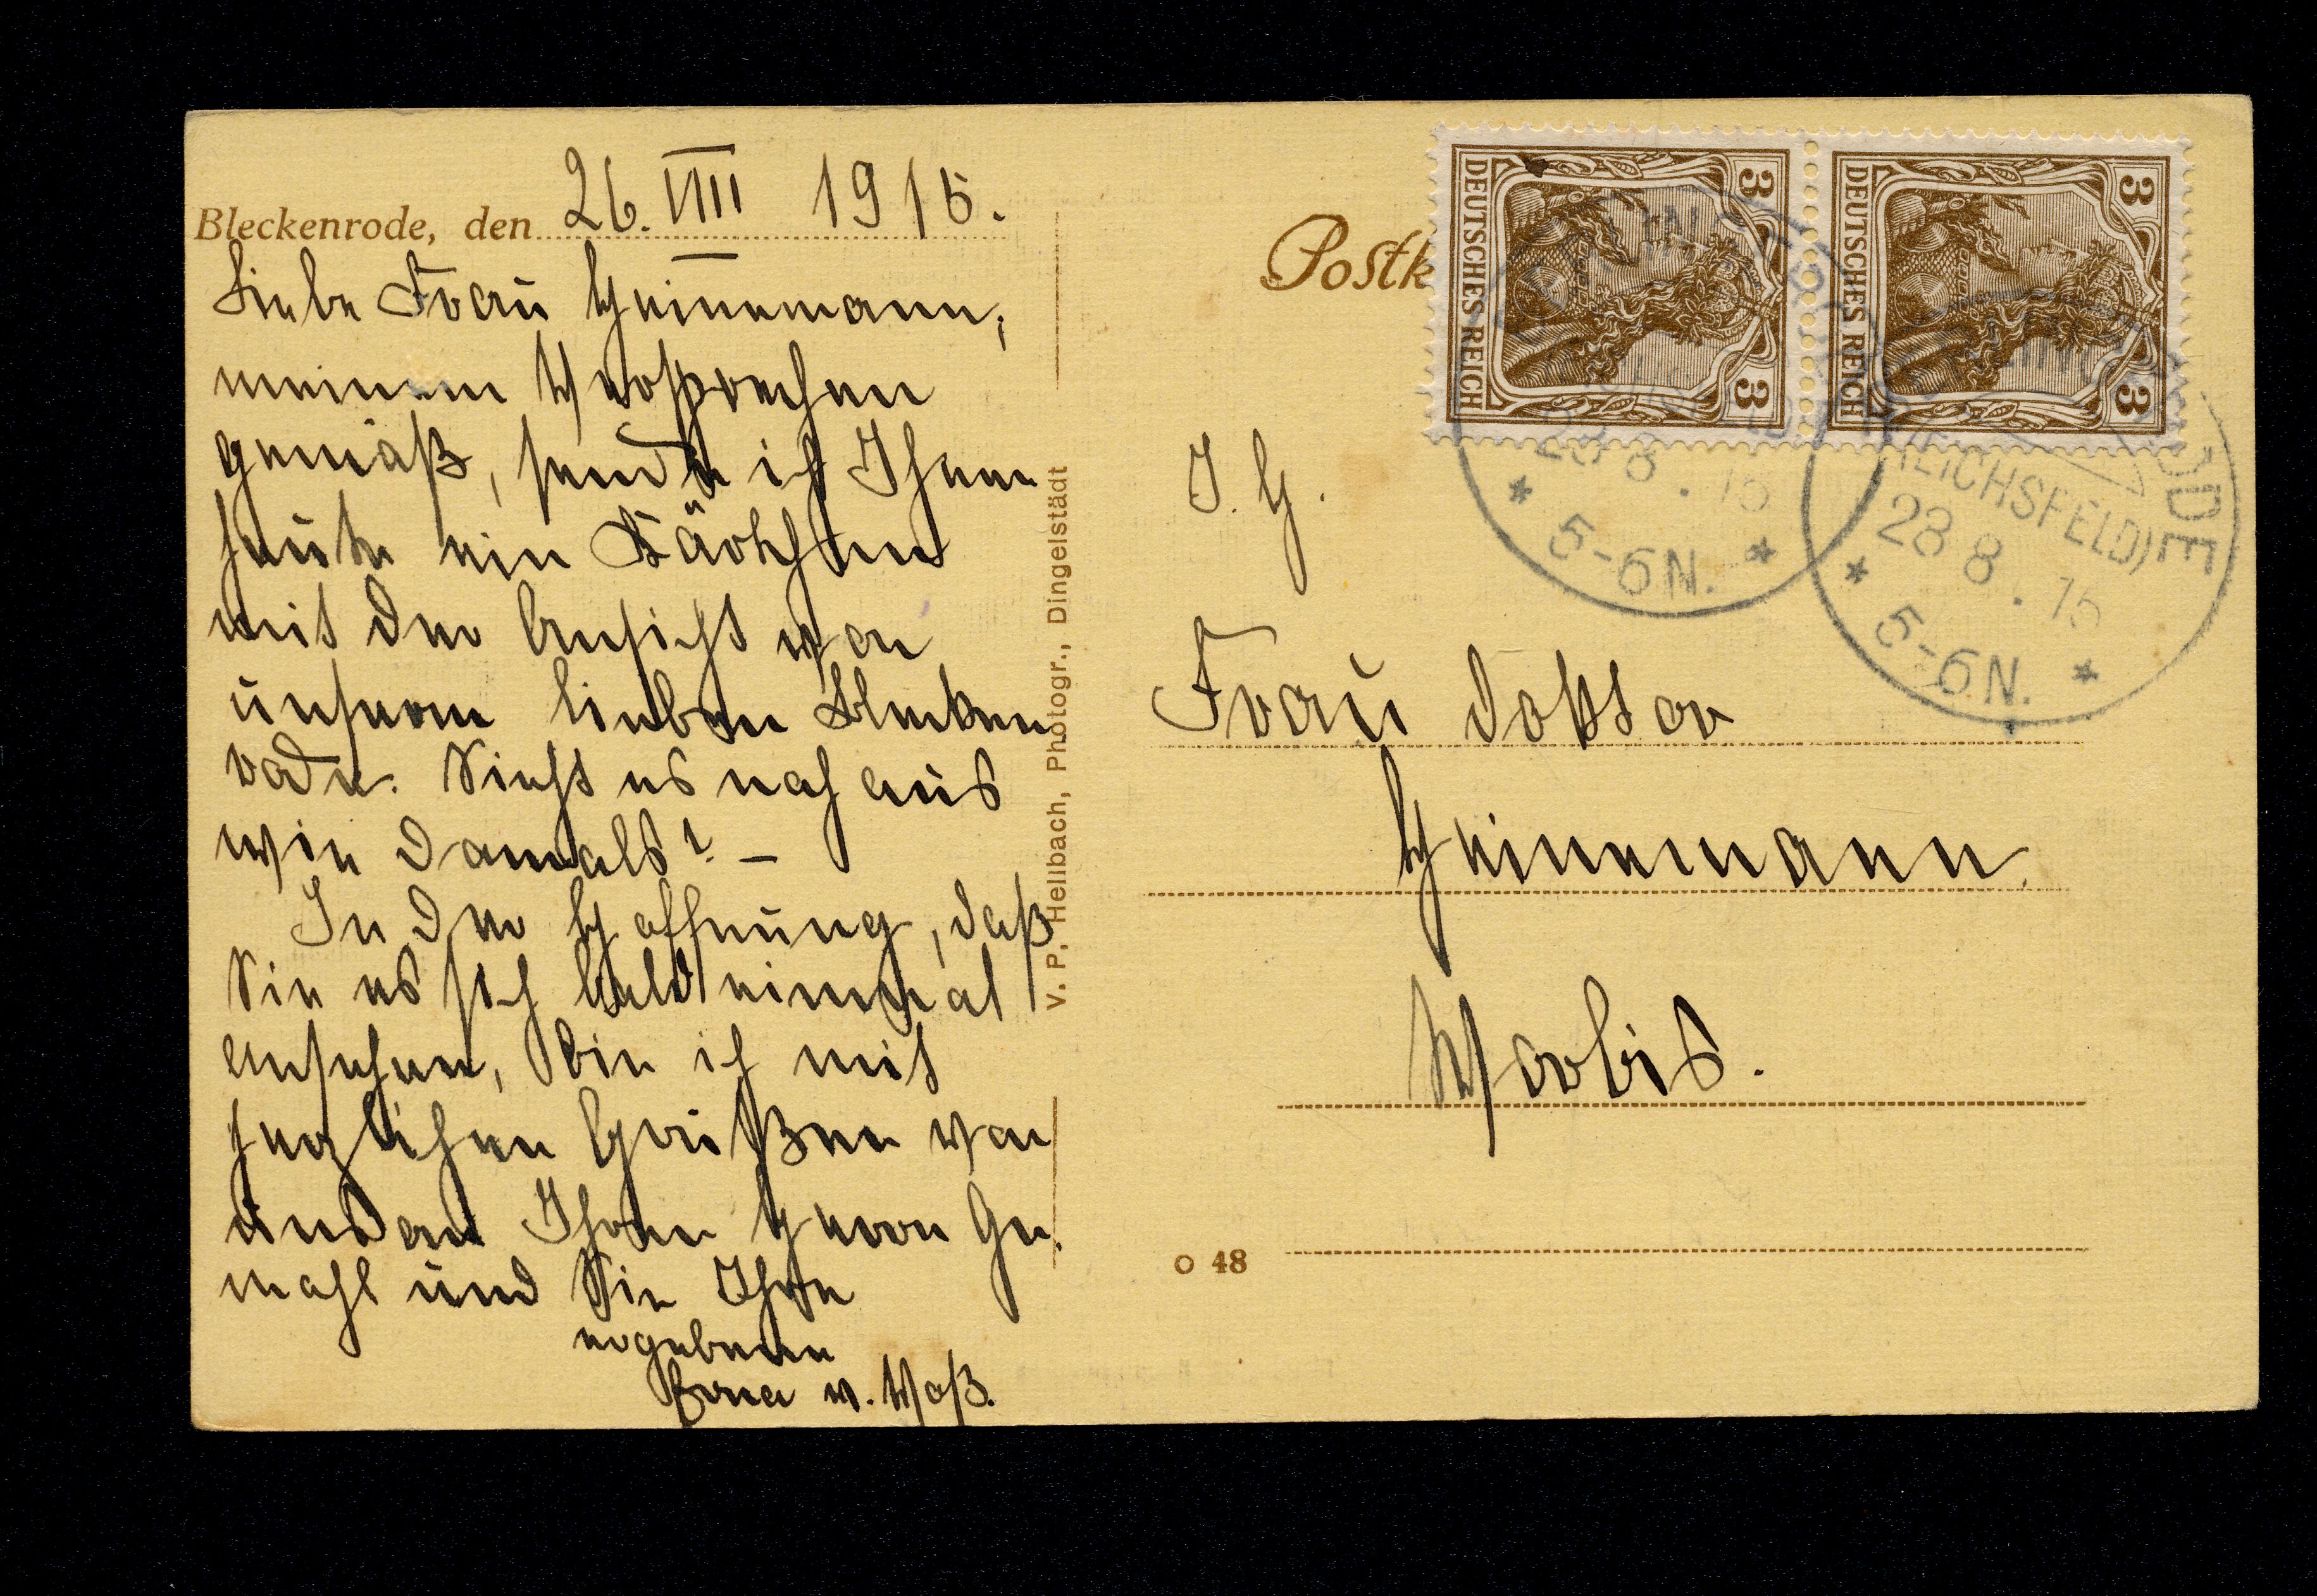 Bleckenrode, den 26. VIII 1915.
Liebe Frau Heinemann,
meinem Versprechen
gemäß, sende ich Ihnen
heute ein Kärtchen
mit der Ansicht von
unserem lieben Blecken
rode. Sieht es noch aus
wie damals? –
In der Hoffnung, daß
Sie es sich bald einmal
ansehen, bin ich mit
herzlichen Grüßen von
und an Ihren Herrn Ge-
mahl und Sie Ihre
ergebene
Erna v. Woß.
V. P. Heilbach, Photogr., Dingelstädt
Postk
DEUTSCHES REICH
3
3
DEUTSCHES REICH
3
3
28 8. 15
* 5-6 N. *
(EICHSFELD)
28 8. 15
* 5-6 N. *
I. H.
Frau Doktor
Heinemann.
Worbis.
O 48